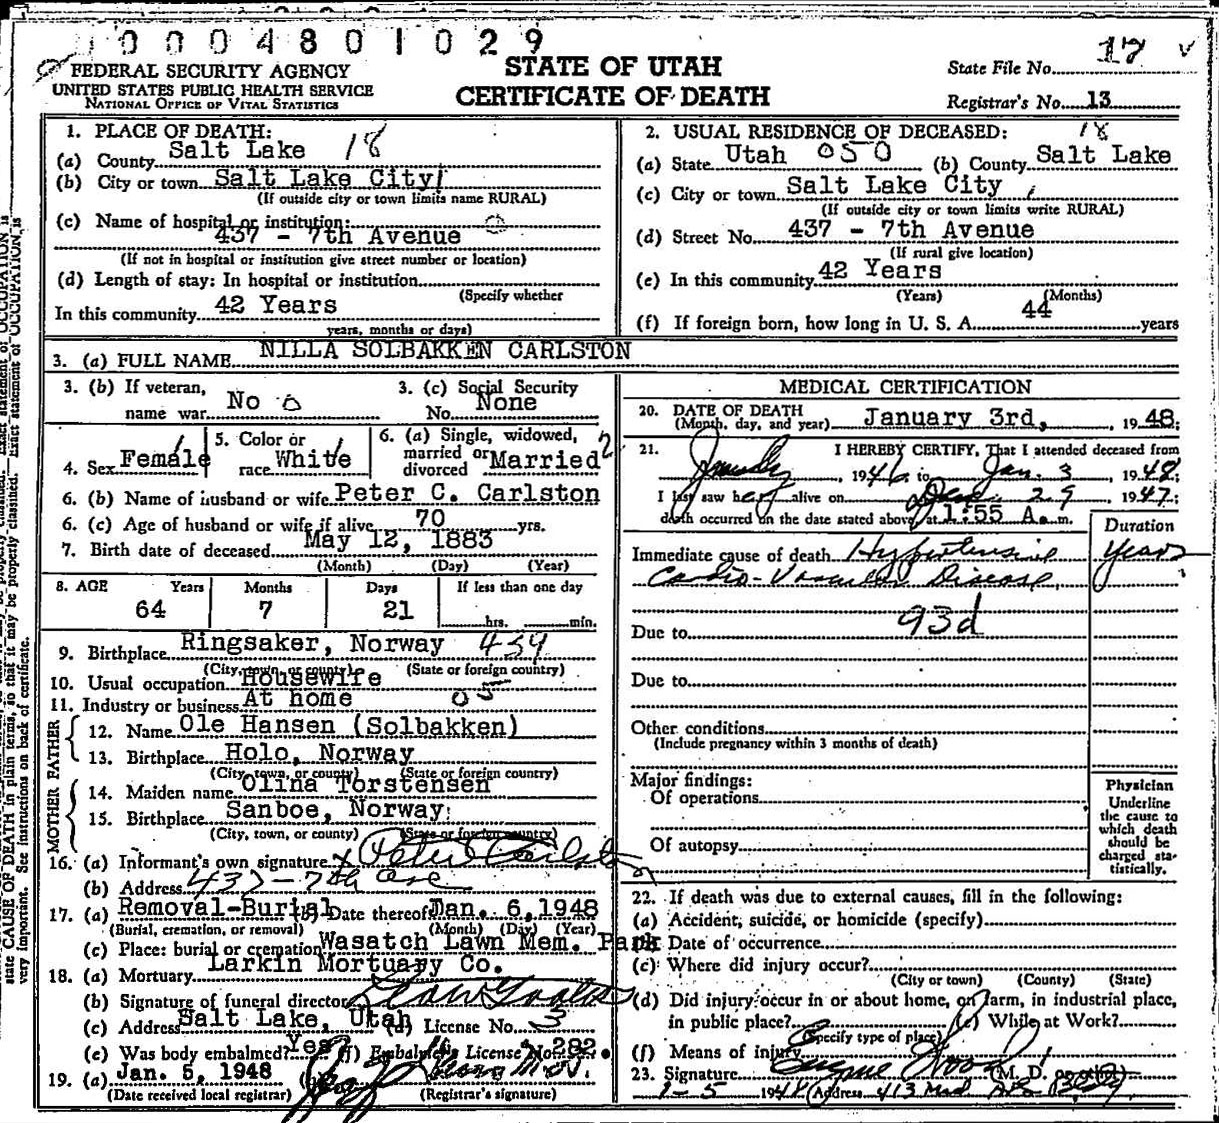 0004801029
FEDERAL SECURITY AGENCY
UNITED STATES PUBLIC HEALTH SERVICE
NATIONAL OFFICE OF VITAL STATISTICS
STATE OF UTAH
CERTIFICATE OF DEATH
State File No. 17
Registrar's No. 13
1. PLACE OF DEATH:
(a) County Salt Lake 18
(b) City or town Salt Lake City
(If outside city or town limits name RURAL)
(c) Name of hospital or institution:
437 - 7th Avenue
(If not in hospital or institution give street number or location)
(d) Length of stay: In hospital or institution
(Specify whether
In this community 42 Years
years, months or days)
2. USUAL RESIDENCE OF DECEASED: 18
(a) State Utah 050 (b) County Salt Lake
(c) City or town Salt Lake City
(If outside city or town limits write RURAL)
(d) Street No. 437 - 7th Avenue
(If rural give location)
(e) In this community 42 Years
(Years) (Months)
(f) If foreign born, how long in U. S. A. 44 years
3. (a) FULL NAME NILLA SOLBAKKEN CARLSTON
3. (b) If veteran,
name war No
3. (c) Social Security
No. None
4. Sex Female
5. Color or
race White
6. (a) Single, widowed,
married or
divorced Married
6. (b) Name of husband or wife Peter C. Carlston
6. (c) Age of husband or wife if alive 70 yrs.
7. Birth date of deceased May 12, 1883
(Month) (Day) (Year)
8. AGE Years Months Days If less than one day
64 7 21 hrs. min.
9. Birthplace Ringsaker, Norway
(City, town, or county) (State or foreign country)
10. Usual occupation Housewife
11. Industry or business At home 05
FATHER
12. Name Ole Hansen (Solbakken)
13. Birthplace Holo, Norway
(City, town, or county) (State or foreign country)
MOTHER
14. Maiden name Olina Torstensen
15. Birthplace Sanboe, Norway
(City, town, or county) (State or foreign country)
16. (a) Informant's own signature x Peter Carlston
(b) Address 437-7th Ave
17. (a) Removal-Burial (b) Date thereof Jan. 6, 1948
(Burial, cremation, or removal) (Month) (Day) (Year)
(c) Place: burial or cremation Wasatch Lawn Mem. Park
18. (a) Mortuary Larkin Mortuary Co.
(b) Signature of funeral director
(c) Address Salt Lake, Utah (d) License No. 3
(e) Was body embalmed? Yes (f) Embalmer's License No. 282
19. (a) Jan. 5, 1948 (b)
(Date received local registrar) (Registrar's signature)
MEDICAL CERTIFICATION
20. DATE OF DEATH
(Month, day, and year) January 3rd, , 1948;
21. I HEREBY CERTIFY, That I attended deceased from
, 1946 to Jan. 3 1948;
I last saw her alive on Dec. 29 1947;
death occurred on the date stated above, at 1:55 A. m.
Duration
Immediate cause of death Hypertensive Years
Cardio-Vascular Disease
93d
Due to
Due to
Other conditions
(Include pregnancy within 3 months of death)
Major findings:
Of operations
Of autopsy
Physician
Underline
the cause to
which death
should be
charged sta-
tistically.
22. If death was due to external causes, fill in the following:
(a) Accident, suicide, or homicide (specify)
Date of occurrence
(c) Where did injury occur?
(City or town) (County) (State)
(d) Did injury occur in or about home, on farm, in industrial place,
in public place? (e) While at Work?
(Specify type of place)
(f) Means of injury
23. Signature Eugene Wood (M. D. or other)
1-5 1948 Address 413 Med Arts Bldg
state CAUSE OF DEATH in plain terms, so that it may be properly classified. Exact statement of OCCUPATION is
very important. See instructions on back of certificate.